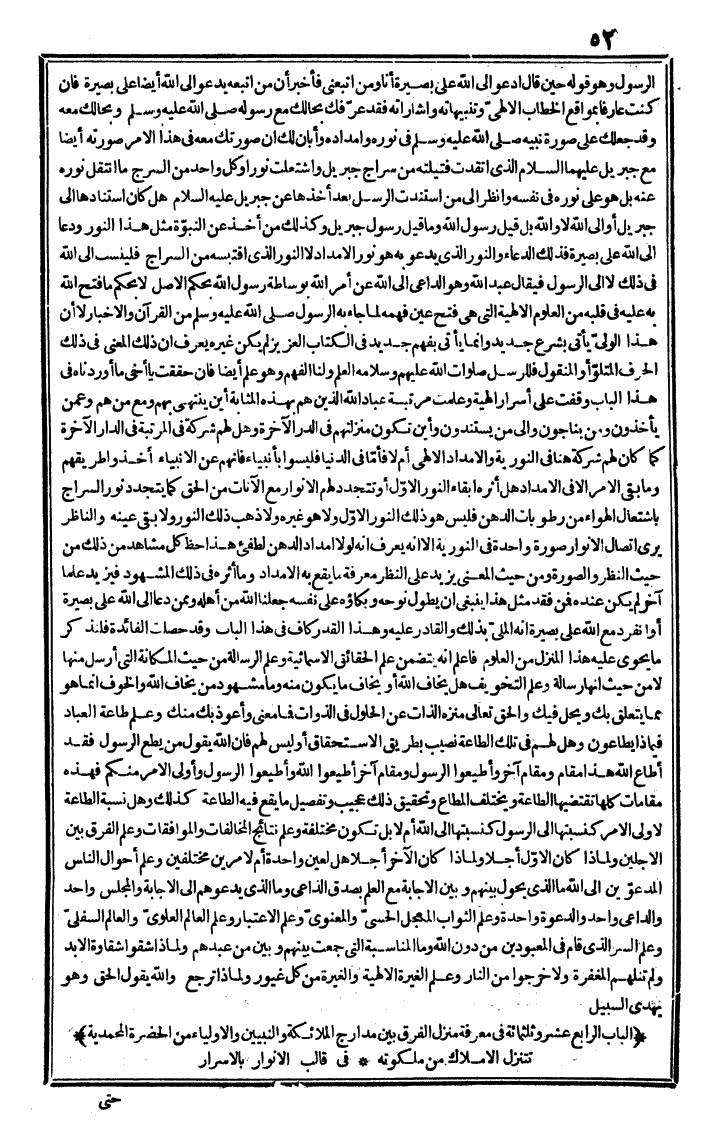 ٥٢
الرسول وهو قوله حين قال ادعو الى الله على بصيرة أنا ومن اتبعنى فأخبر أن من اتبعه يدعو الى الله أيضا على بصيرة فان
كنت عارفا بمواقع الخطاب الالهىّ وتنبيهاته واشاراته فقد عرّفك بحالك مع رسوله صلى الله عليه وسلم وبحالك معه
وقد جعلك على صورة نبيه صلى الله عليه وسلم فى نوره وامداده وأبان لك ان صورتك معه فى هذا الامر صورته أيضا
مع جبريل عليهما السلام الذى اتقدت فتيلته من سراج جبريل واشتعلت نورا وكل واحد من السرج ما انتقل نوره
عنه بل هو على نوره فى نفسه وانظر الى من استندت الرسل بعد أخذها عن جبريل عليه السلام هل كان استنادها الى
جبريل أو الى الله لا والله بل قيل رسول الله وما قيل رسول جبريل وكذلك من أخذ عن النبوّة مثل هذا النور ودعا
الى الله على بصيرة فذلك الدعاء والنور الذى يدعو به هو نور الامداد لا النور الذى اقتبسه من السراج فلينسب الى الله
فى ذلك لا الى الرسول فيقال عبد الله وهو الداعى الى الله عن أمر الله بوساطة رسول الله بحكم الاصل لا بحكم ما فتح الله
به عليه فى قلبه من العلوم الالهية التى هى فتح عين فهمه لما جاء به الرسول صلى الله عليه وسلم من القرآن والاخبار لا أن
هذا الولىّ يأتى بشرع جديد وانما يأتى بفهم جديد فى الكتاب العزيز لم يكن غيره يعرف ان ذلك المعنى فى ذلك
الحرف المتلوّ أو المنقول فللرسل صلوات الله عليهم وسلامه العلم ولنا الفهم وهو علم أيضا فان حققت يا أخى ما أوردناه فى
هذا الباب وقفت على أسرار الهية وعلمت مرتبة عباد الله الذين هم بهذه المثابة أين ينتهى بهم ومع من هم وعمن
يأخذون ومن يناجون والى من يستندون وأين تكون منزلتهم فى الدر الآخرة وهل لهم شركة فى المرتبة فى الدار الآخرة
كما كان لهم شركة هنا فى النورية والامداد الالهى أم لا فأمّا فى الدنيا فليسوا بأنبياء فانهم عن الانبياء أخذوا طريقهم
وما بقى الامر الا فى الامداد هل أثره ابقاء النور الاوّل أو تتجدد لهم الانوار مع الآنات من الحق كما يتجدد نور السراج
باشتعال الهواء من رطوبات الدهن فليس هو ذلك النور الاوّل ولا هو غيره ولا ذهب ذلك النور ولا بقى عينه والناظر
يرى اتصال الانوار صورة واحدة فى النورية الا انه يعرف انه لولا امداد الدهن لطفئ هذا حظ كل مشاهد من ذلك من
حيث النظر والصورة ومن حيث المعنى يزيد على النظر معرفة ما يقع به الامداد وما أثره فى ذلك المشهود فيزيد علما
آخر لم يكن عنده فمن فقد مثل هذا ينبغى ان يطول نوحه وبكاؤه على نفسه جعلنا الله من أهله وممن دعا الى الله على بصيرة
أو انفرد مع الله على بصيرة انه الملىّ بذلك والقادر عليه وهذا القدر كاف فى هذا الباب وقد حصلت الفائدة فلنذكر
ما يحوى عليه هذا المنزل من العلوم فاعلم انه يتضمن علم الحقائق الاسمائية وعلم الرسالة من حيث المكانة التى أرسل منها
لا من حيث انها رسالة وعلم التخويف هل يخاف الله أو يخاف ما يكون منه وما مشهود من يخاف الله والخوف انما هو
مما يتعلق بك ويحل فيك والحق تعالى منزه الذات عن الحلول فى الذوات فما معنى وأعوذ بك منك وعلم طاعة العباد
فيماذا يطاعون وهل لهم فى تلك الطاعة نصيب بطريق الاستحقاق أو ليس لهم فان الله يقول من يطع الرسول فقد
أطاع الله هذا مقام ومقام آخر وأطيعوا الرسول ومقام آخر أطيعوا الله وأطيعوا الرسول وأولى الامر منكم فهذه
مقامات كلها تقتضيها الطاعة ويختلف المطاع وتحقيق ذلك عجيب وتفصيل ما يقع فيه الطاعة كذلك وهل نسبة الطاعة
لاولى الامر كنسبتها الى الرسول كنسبتها الى الله أم لا بل تكون مختلفة وعلم نتائج المخالفات والموافقات وعلم الفرق بين
الاجلين ولماذا كان الاوّل أجلا ولماذا كان الآخر أجلا هل لعين واحدة أم لامرين مختلفين وعلم أحوال الناس
المدعوّين الى الله ما الذى يحول بينهم وبين الاجابة مع العلم بصدق الداعى وما الذى يدعوهم الى الاجابة والمجلس واحد
والداعى واحد والدعوة واحدة وعلم الثواب المعجل الحسىّ والمعنوىّ وعلم الاعتبار وعلم العالم العلوىّ والعالم السفلىّ
وعلم السر الذى قام فى المعبودين من دون الله وما المناسبة التى جمعت بينهم وبين من عبدهم ولماذا شقوا شقاوة الابد
ولم تنلهم المغفرة ولا خرجوا من النار وعلم الغيرة الالهية والغيرة من كل غيور ولماذا ترجع والله يقول الحق وهو
يهدى السبيل
﴿الباب الرابع عشر وثلثمائة فى معرفة منزل الفرق بين مدارج الملائكة والنبيين والاولياء من الحضرة المحمدية﴾
تتنزل الاملاك من ملكوته * فى قالب الانوار بالاسرار
حتى